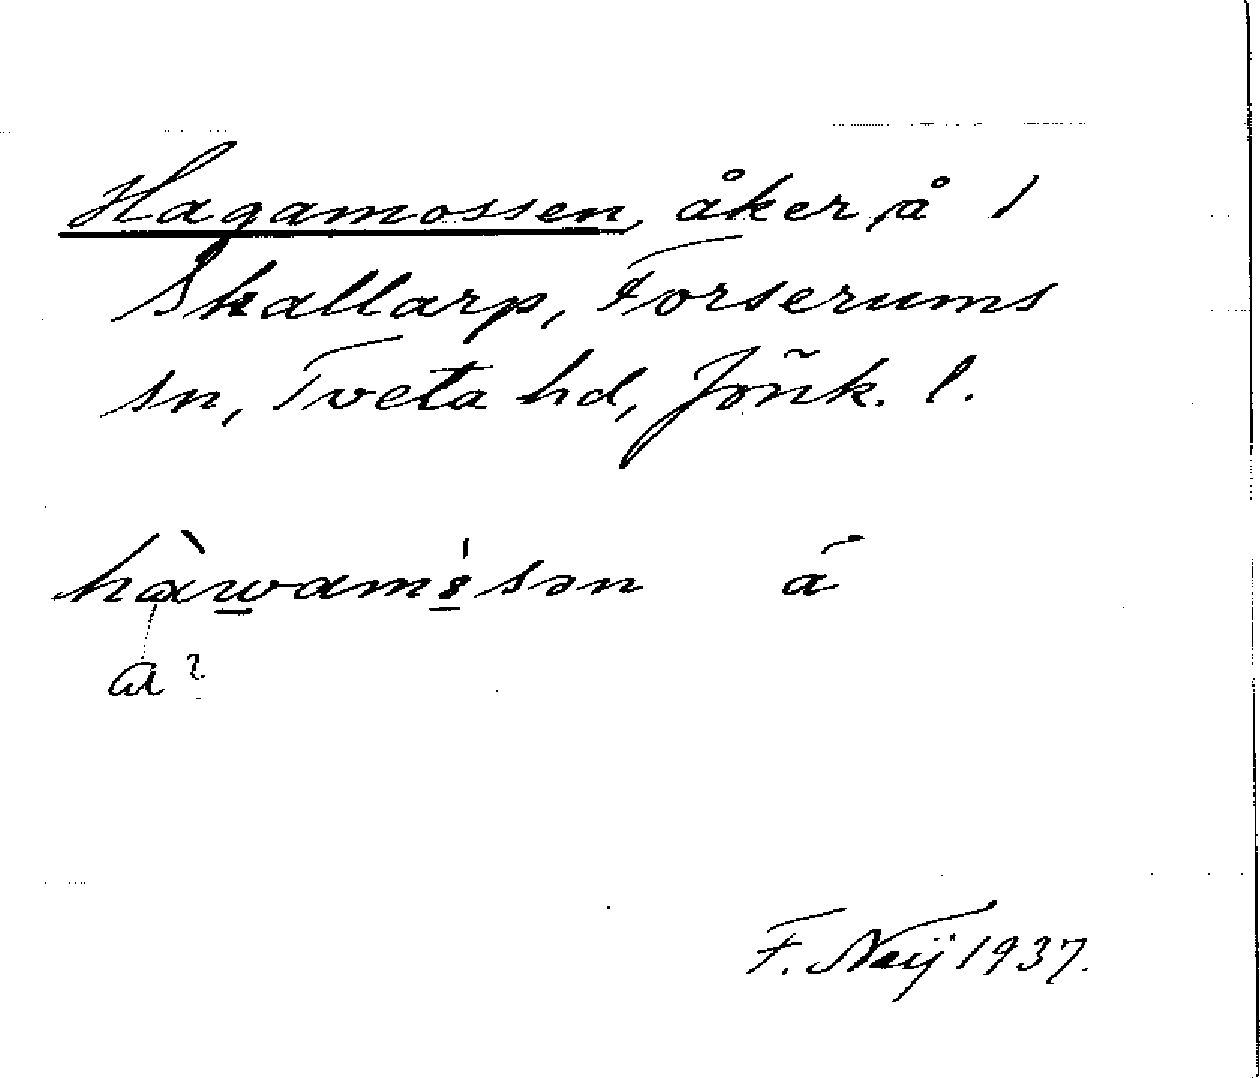 Hagamossen, åker å 1
Skallarp, Forserums
sn, Tveta hd, Jönk. l.
hàwam sən á
a?
F. Neij 1937.